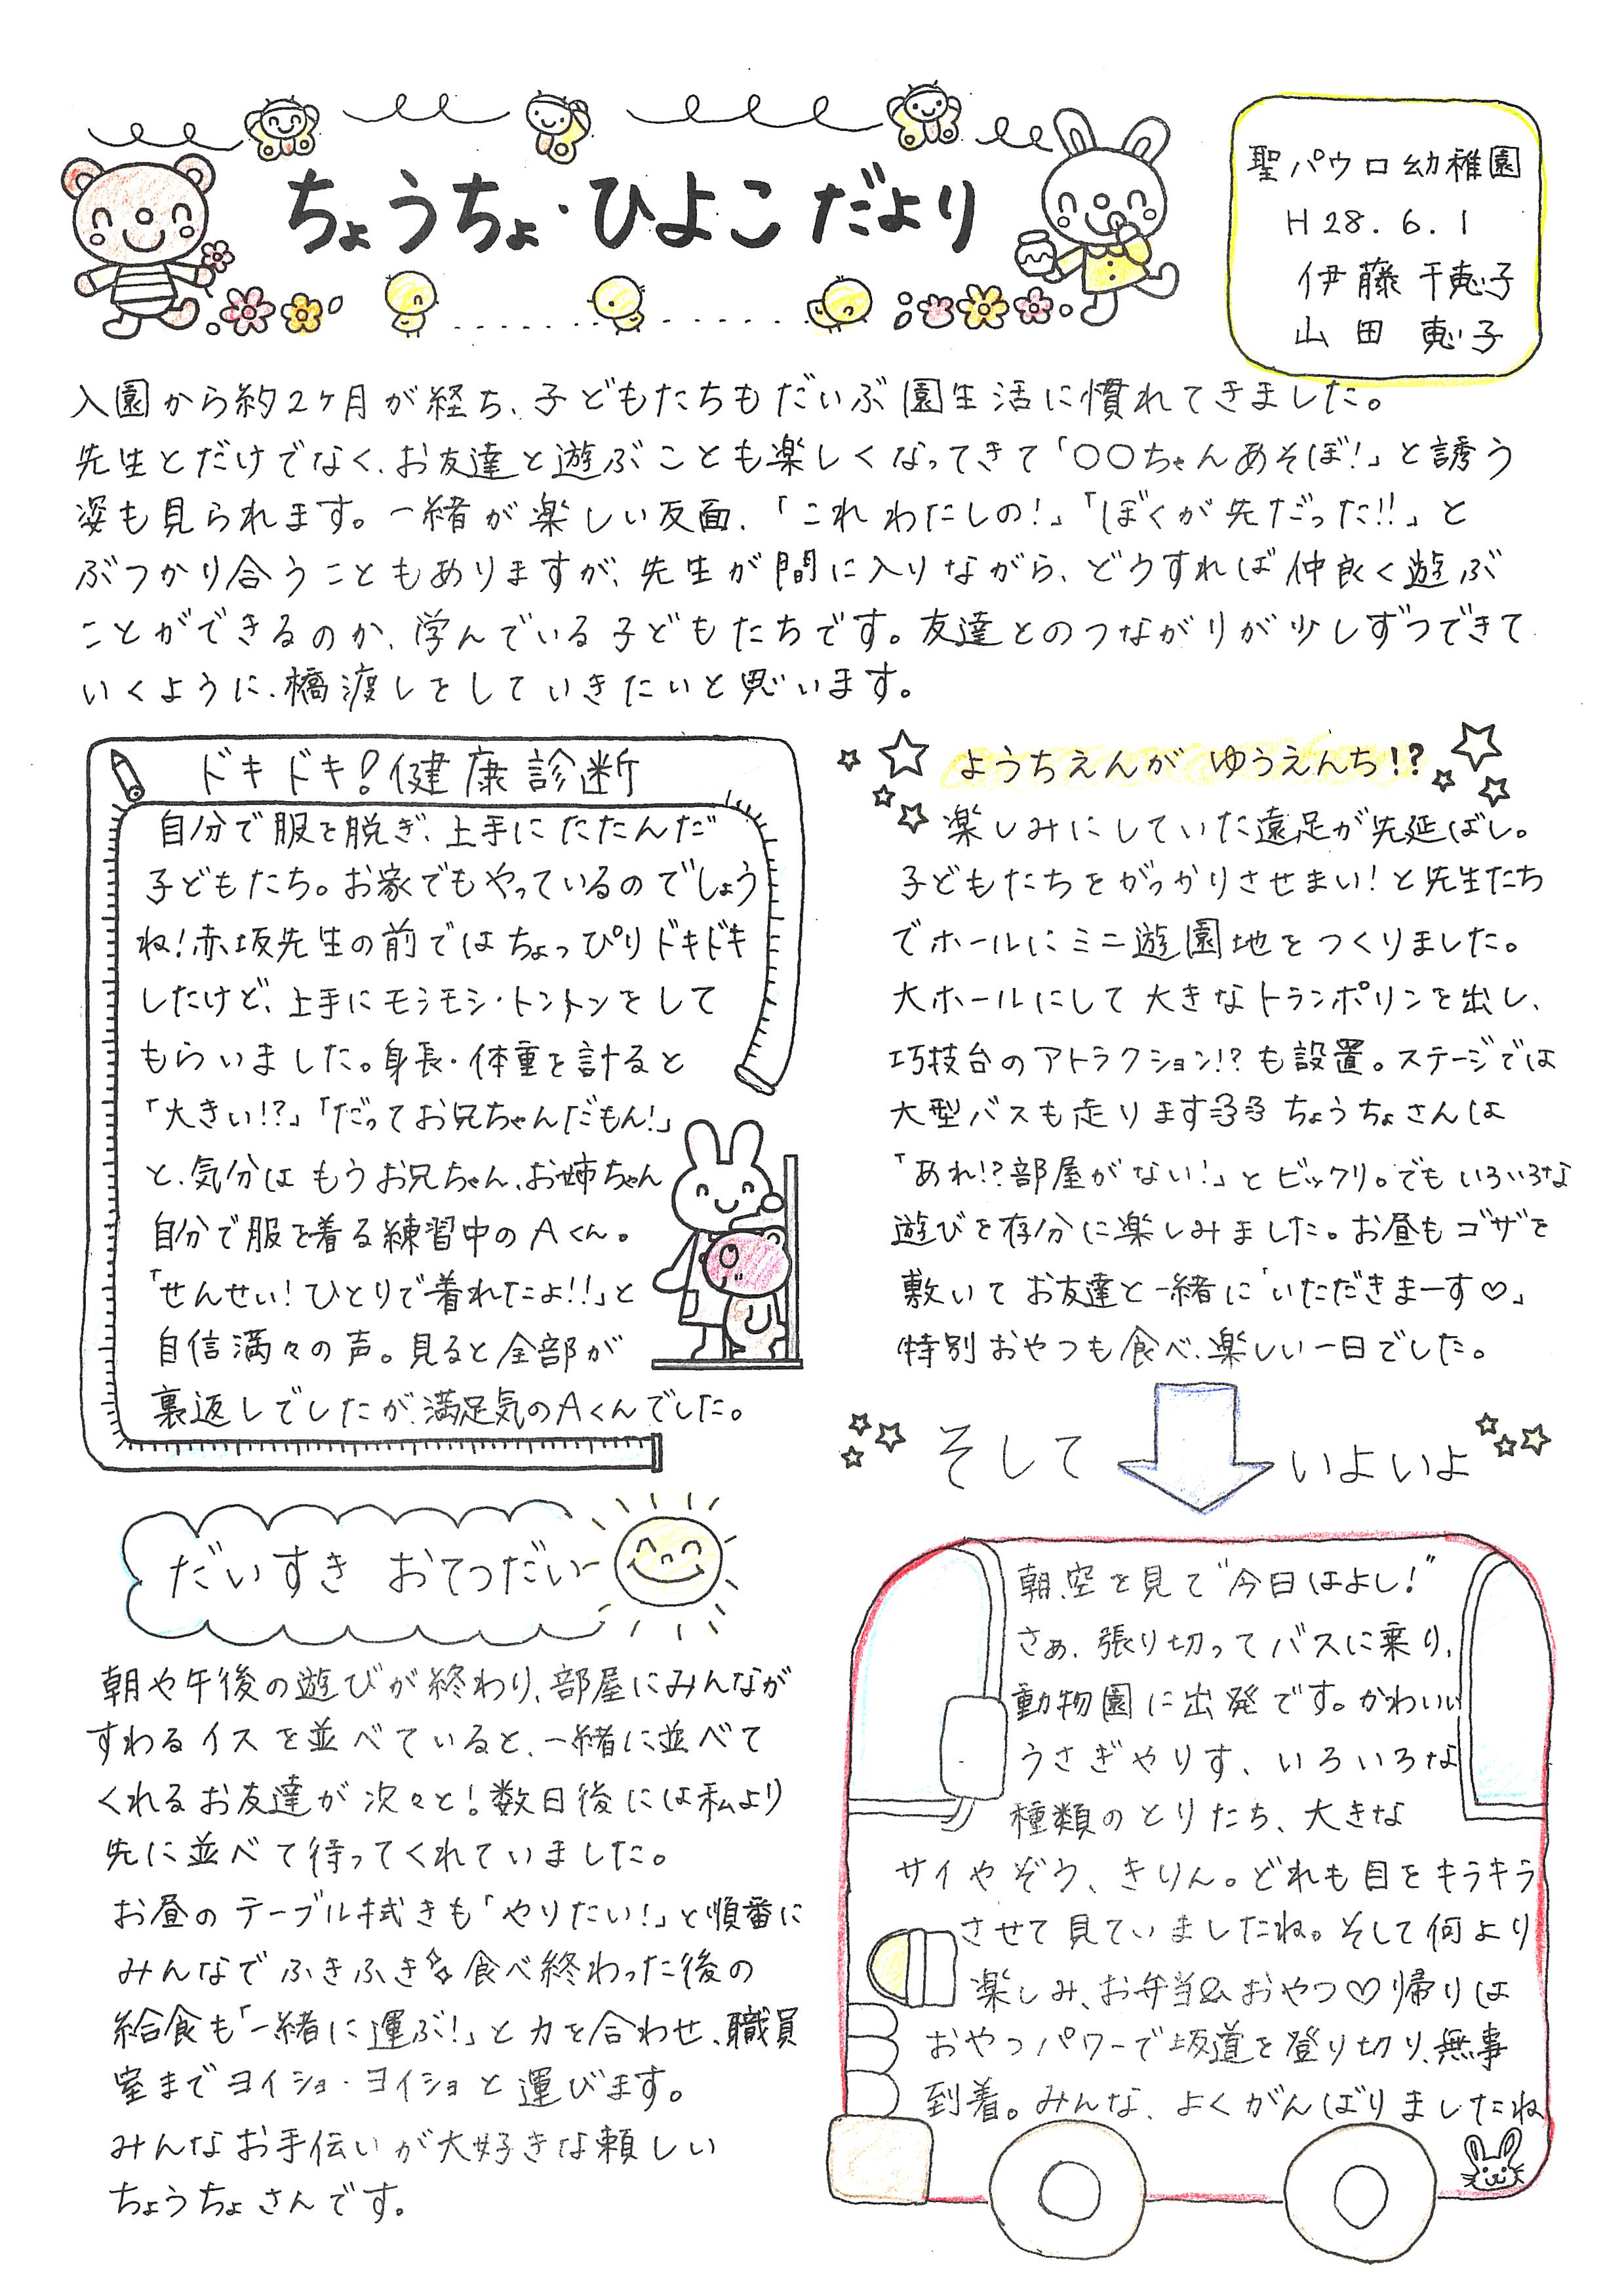 ちょうちょ・ひよこだより
聖パウロ幼稚園
H28.6.1
伊藤 千恵子
山田 恵子
入園から約2ヶ月が経ち、子どもたちもだいぶ園生活に慣れてきました。
先生とだけでなく、お友達と遊ぶことも楽しくなってきて「〇〇ちゃんあそぼ!」と誘う
姿も見られます。一緒が楽しい反面、「これわたしの!」「ぼくが先だった!!」と
ぶつかり合うこともありますが、先生が間に入りながら、どうすれば仲良く遊ぶ
ことができるのか、学んでいる子どもたちです。友達とのつながりが少しずつできて
いくように、橋渡しをしていきたいと思います。
ドキドキ!健康診断
自分で服を脱ぎ、上手にたたんだ
子どもたち。お家でもやっているのでしょう
ね!赤坂先生の前ではちょっぴりドキドキ
したけど、上手にモシモシ・トントンをして
もらいました。身長・体重を計ると
「大きい!?」「だってお兄ちゃんだもん!」
と、気分はもうお兄ちゃん、お姉ちゃん
自分で服を着る練習中のAくん。
「せんせい!ひとりで着れたよ!!」と
自信満々の声。見ると全部が
裏返しでしたが、満足気のAくんでした。
ようちえんが ゆうえんち!?
楽しみにしていた遠足が先延ばし。
子どもたちをがっかりさせまい!と先生たち
でホールにミニ遊園地をつくりました。
大ホールにして大きなトランポリンを出し、
巧技台のアトラクション!?も設置。ステージでは
大型バスも走ります ちょうちょさんは
「あれ!?部屋がない!」とビックリ。でもいろいろな
遊びを存分に楽しみました。お昼もゴザを
敷いてお友達と一緒に「いただきまーす♡」
特別おやつも食べ、楽しい一日でした。
そして いよいよ
だいすき おてつだい
朝や午後の遊びが終わり、部屋にみんなが
すわるイスを並べていると、一緒に並べて
くれるお友達が次々と!数日後には私より
先に並べて待ってくれていました。
お昼のテーブル拭きも「やりたい!」と順番に
みんなでふきふき 食べ終わった後の
給食も「一緒に運ぶ!」と力を合わせ、職員
室までヨイショ・ヨイショと運びます。
みんなお手伝いが大好きな頼しい
ちょうちょさんです。
朝、空を見て"今日はよし!"
さぁ、張り切ってバスに乗り、
動物園に出発です。かわいい
うさぎやりす、いろいろな
種類のとりたち、大きな
サイやぞう、きりん。どれも目をキラキラ
させて見ていましたね。そして何より
楽しみ、お弁当&おやつ♡帰りは
おやつパワーで坂道を登り切り、無事
到着。みんな、よくがんばりましたね